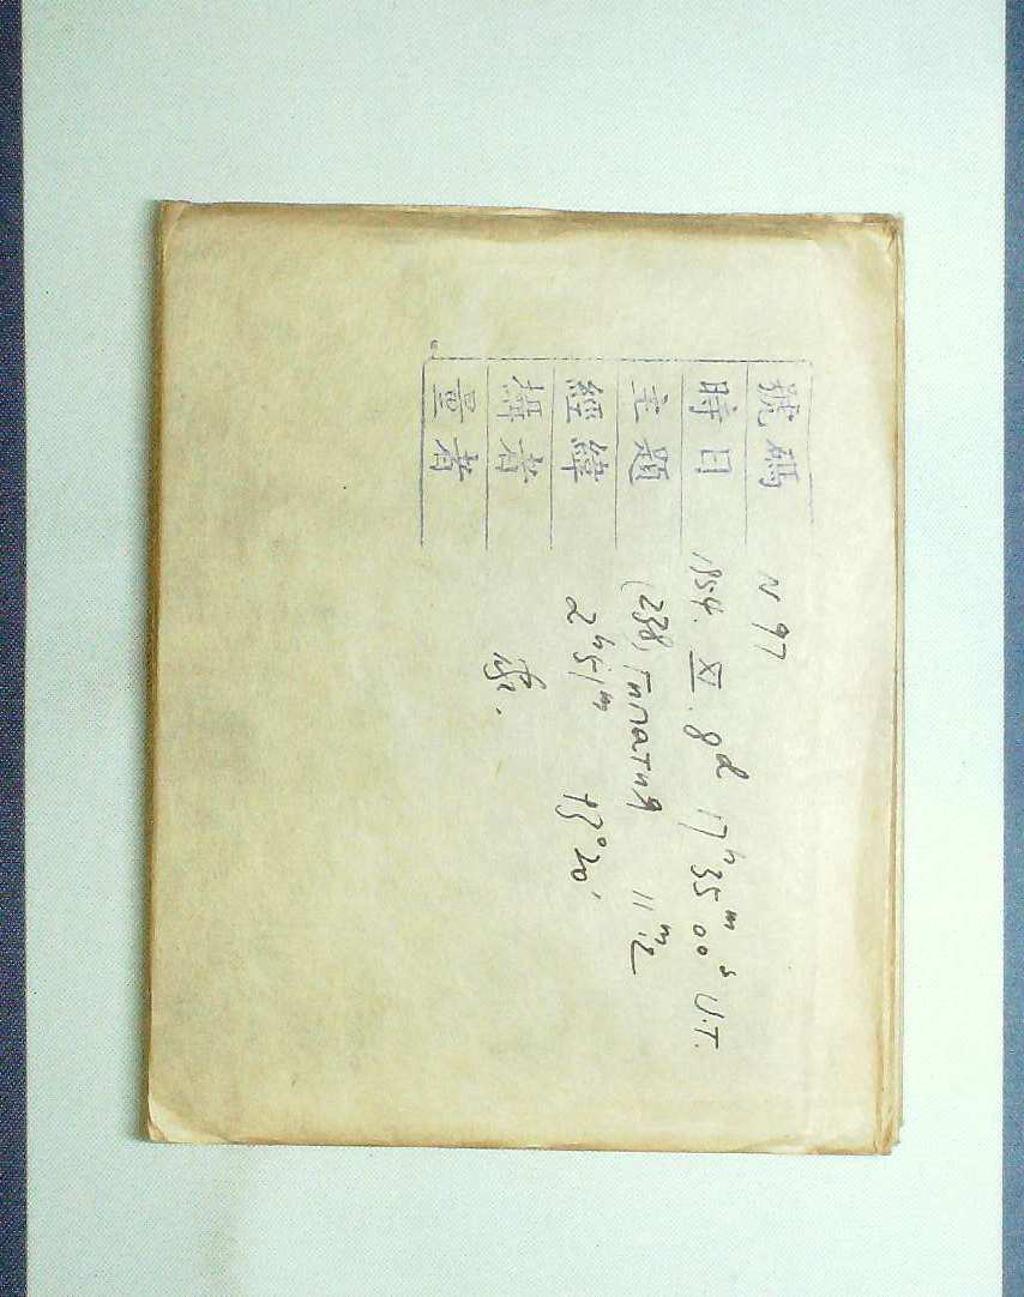 號碼 N 97
時日 1954. XI. 8d 17h 35m 00s U.T.
主題 (238, Гипатия 11m.2
經緯 2h51m +3°20'
攝者
量者